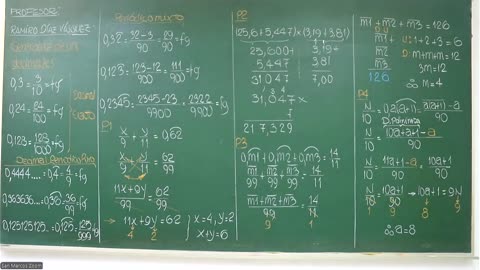 PROFESOR:
RAMIRO DÍAZ VÁSQUEZ
Generatriz de un
decimales
0,3 = 3/10 = fg
0,24 = 24/100 = fg
0,123 = 123/1000 = fg
Decimal Exacto
Decimal Periódico Puro
0,4444.... = 0,4̂ = 4/9 = fg
0,363636... = 0,36̂ = 36/99 = fg
0,125125125.. = 0,125̂ = 125/999 = fg
Periódico mixto
0,32̂ = 32-3/90 = 29/90 = fg
0,123̂ = 123-12/900 = 111/900 = fg
0,2345̂ = 2345-23/9900 = 2322/9900 = fg
P1
x/9 + y/11 = 0,62̂
x/9 + y/11 = 62/99
11x+9y/99 = 62/99
11x+9y = 62
4 2
x=4, y=2
x+y=6
P2
(25,6+5,447)×(3,19+3,81)
25,600+
5,447
31,047
3,19+
3,81
7,00
31,047 ×
7
217,329
P3
0,m1̂+0,m2̂+0,m3̂ = 14/11
m1/99 + m2/99 + m3/99 = 14/11
m1+m2+m3/99 = 14/11
9 1
m1+m2+m3 = 126
m1
m2
m3
126
U: 1+2+3=6
D: m+m+m=12
3m=12
∴ m=4
P4
N/10 = 0,a(a+1) = a(a+1)-a/90
D. Polinómica
N/10 = 10a+a+1-a/90
N/10 = 11a+1-a/90 = 10a+1/90
N/10 = 10a+1/90 → 10a+1 = 9N
1 9 8 9
∴ a=8
San Marcos Zoom